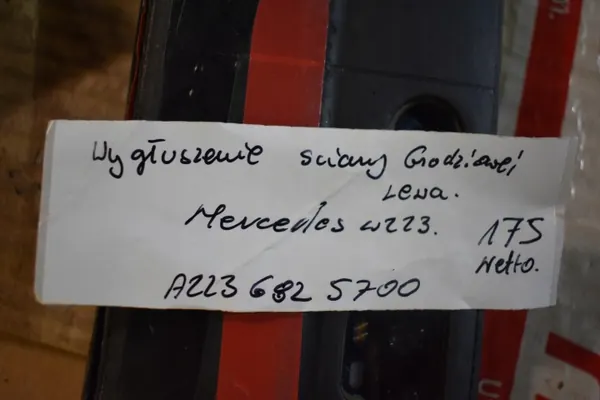 Wygłuszenie sciany Grodziowej
Lewa.
Mercedes w223.
175
Netto.
A223 682 5700